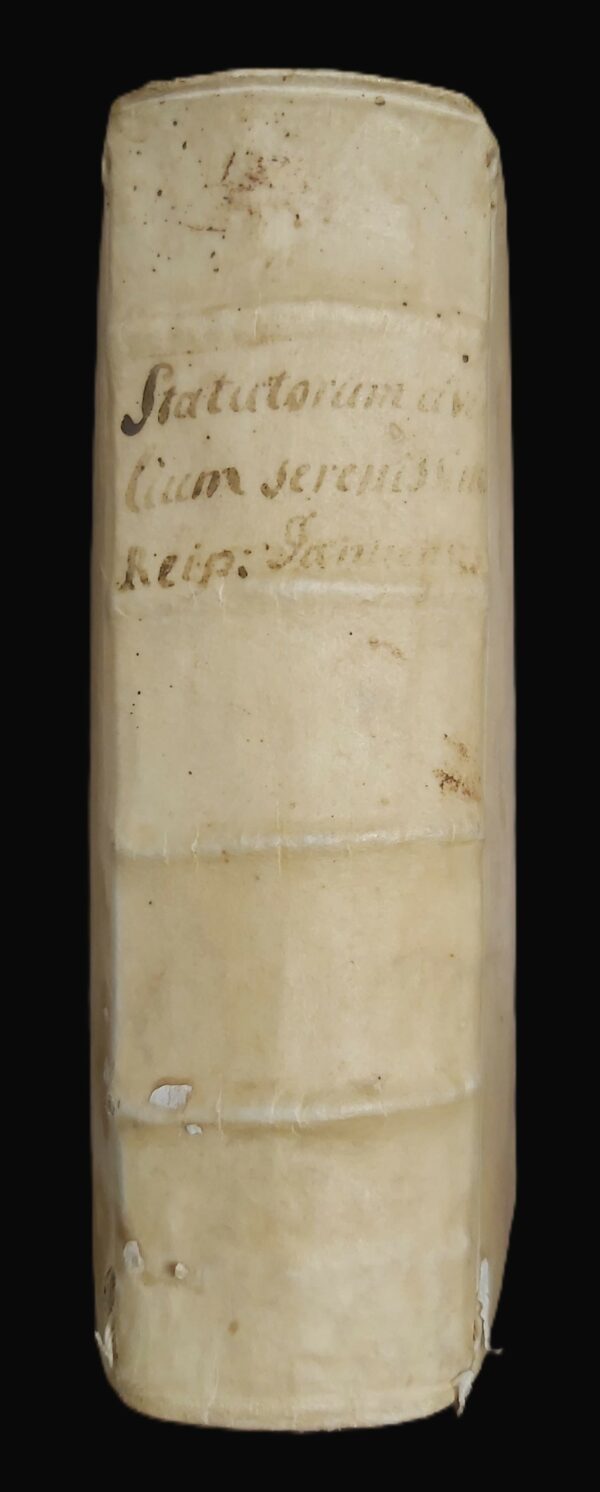 Statutorum civi
lium serenissim
Reip: Januens